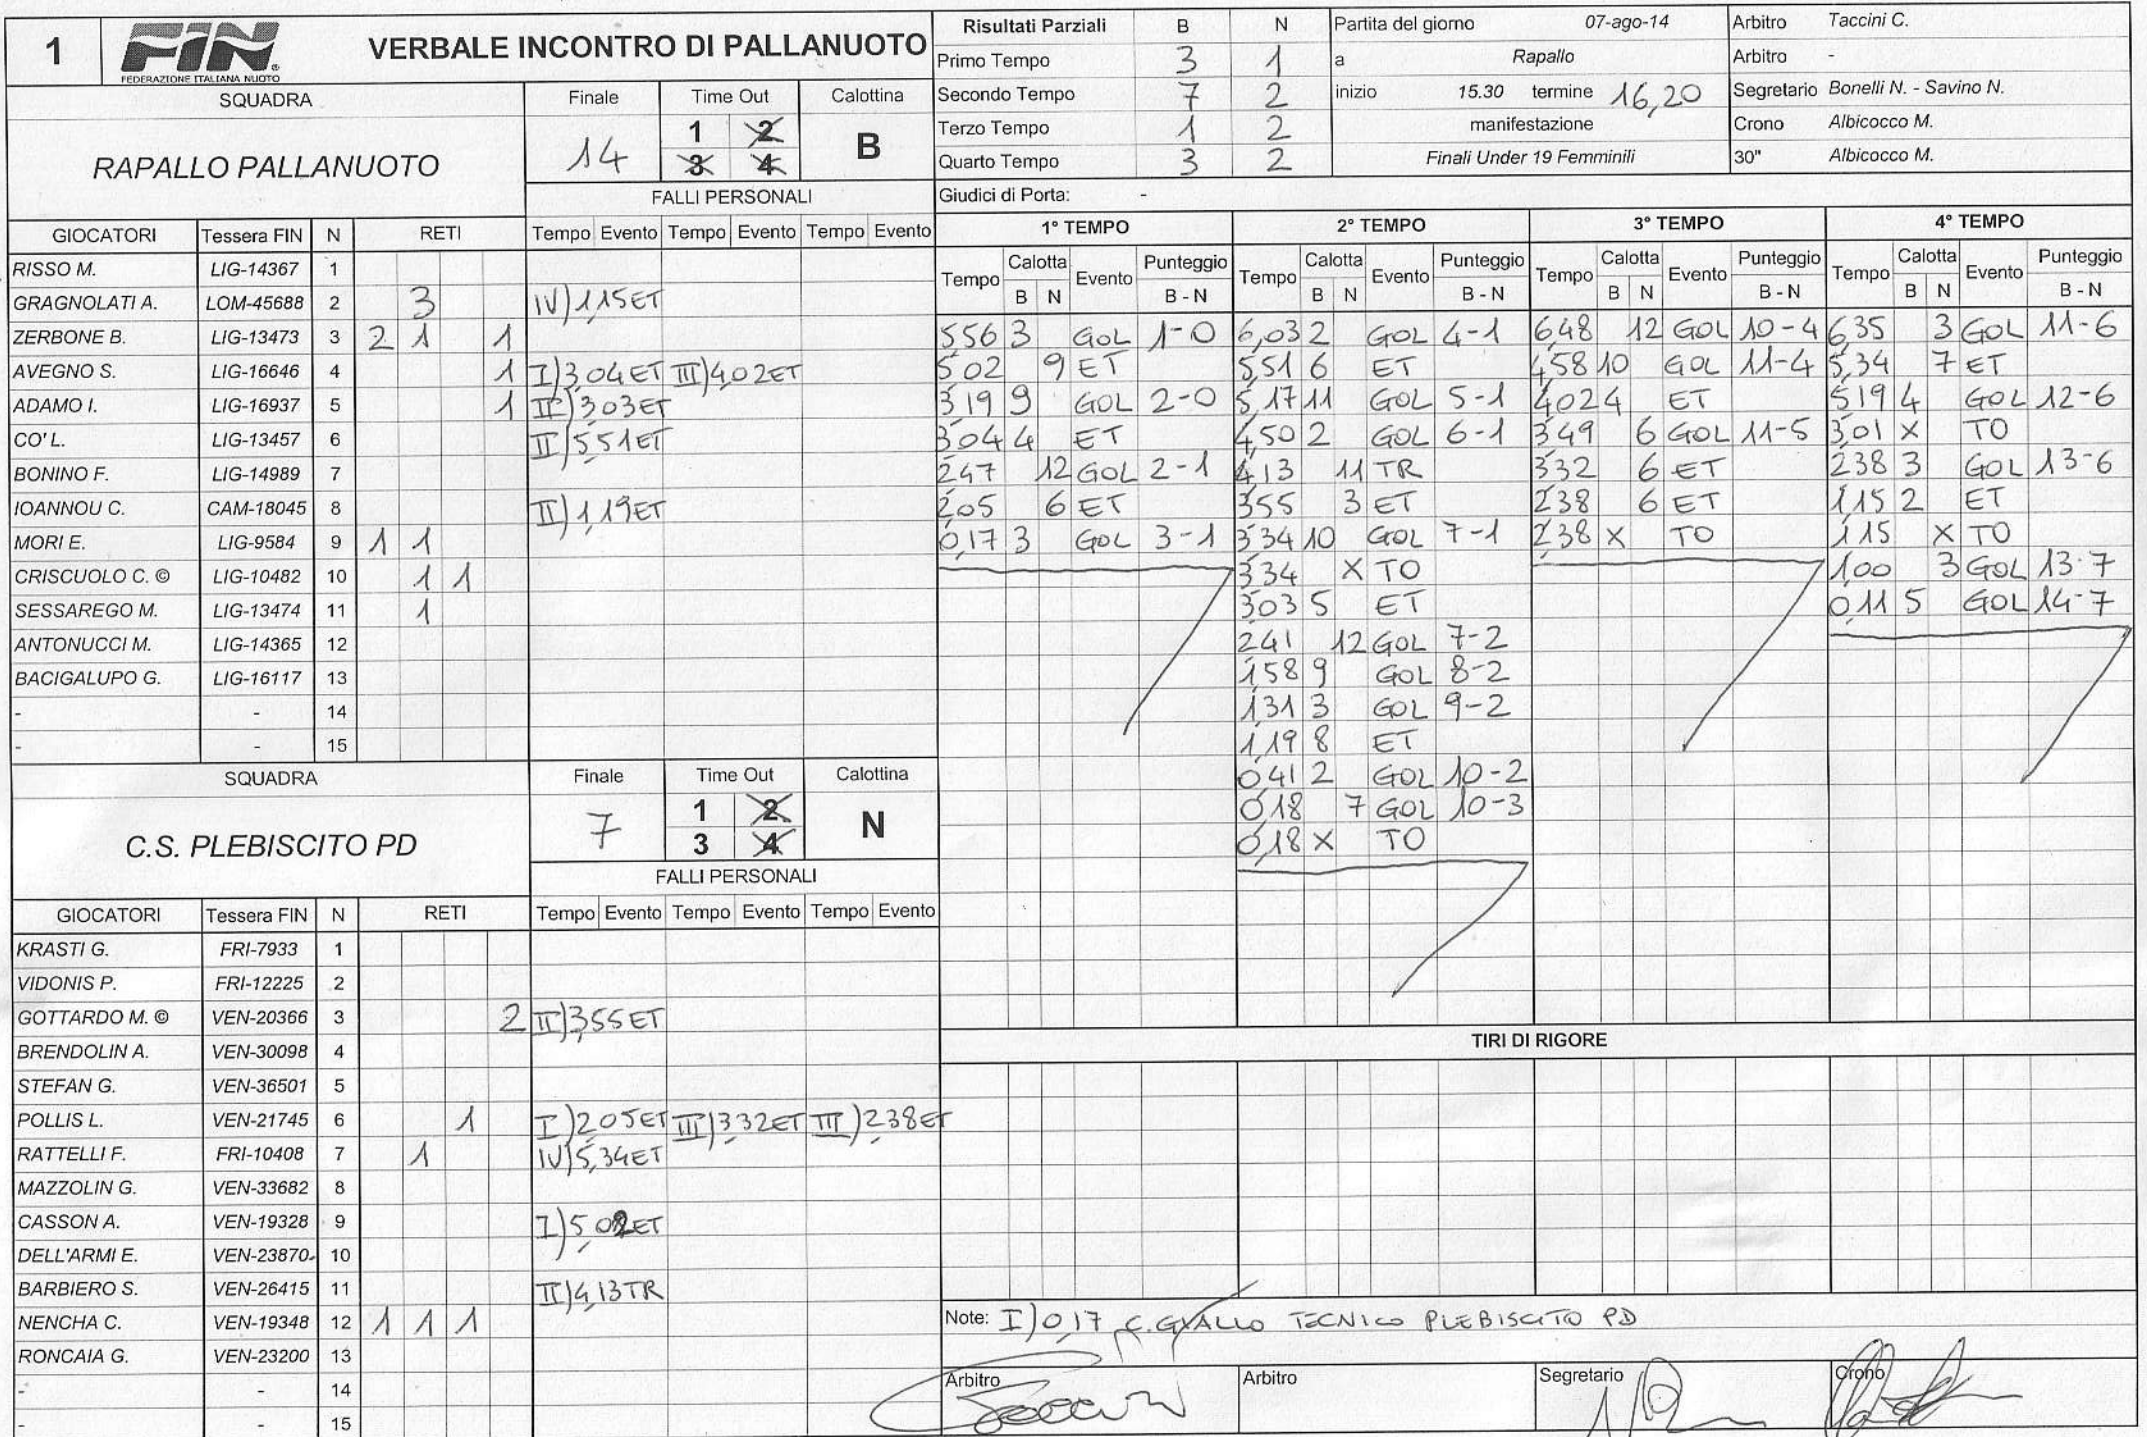 1 FIN VERBALE INCONTRO DI PALLANUOTO
FEDERAZIONE ITALIANA NUOTO
Risultati Parziali B N
Primo Tempo 3 1
Secondo Tempo 7 2
Terzo Tempo 1 2
Quarto Tempo 3 2
Partita del giorno 07-ago-14
a Rapallo
inizio 15.30 termine 16,20
manifestazione
Finali Under 19 Femminili
Arbitro Taccini C.
Arbitro -
Segretario Bonelli N. - Savino N.
Crono Albicocco M.
30" Albicocco M.
Giudici di Porta: -
SQUADRA Finale Time Out Calottina
RAPALLO PALLANUOTO 14 1 2 3 4 B
FALLI PERSONALI
GIOCATORI Tessera FIN N RETI Tempo Evento Tempo Evento Tempo Evento
RISSO M. LIG-14367 1
GRAGNOLATI A. LOM-45688 2 3 IV) 1,15 ET
ZERBONE B. LIG-13473 3 2 1 1
AVEGNO S. LIG-16646 4 1 I) 3,04 ET III) 4,02 ET
ADAMO I. LIG-16937 5 1 II) 3,03 ET
CO' L. LIG-13457 6 II) 5,51 ET
BONINO F. LIG-14989 7
IOANNOU C. CAM-18045 8 II) 1,19 ET
MORI E. LIG-9584 9 1 1
CRISCUOLO C. © LIG-10482 10 1 1
SESSAREGO M. LIG-13474 11 1
ANTONUCCI M. LIG-14365 12
BACIGALUPO G. LIG-16117 13
- - 14
- - 15
SQUADRA Finale Time Out Calottina
C.S. PLEBISCITO PD 7 1 2 3 4 N
FALLI PERSONALI
GIOCATORI Tessera FIN N RETI Tempo Evento Tempo Evento Tempo Evento
KRASTI G. FRI-7933 1
VIDONIS P. FRI-12225 2
GOTTARDO M. © VEN-20366 3 2 II) 3,55 ET
BRENDOLIN A. VEN-30098 4
STEFAN G. VEN-36501 5
POLLIS L. VEN-21745 6 1 I) 2,05 ET III) 3,32 ET III) 2,38 ET
RATTELLI F. FRI-10408 7 1 IV) 5,34 ET
MAZZOLIN G. VEN-33682 8
CASSON A. VEN-19328 9 I) 5,02 ET
DELL'ARMI E. VEN-23870 10
BARBIERO S. VEN-26415 11 II) 4,13 TR
NENCHA C. VEN-19348 12 1 1 1
RONCAIA G. VEN-23200 13
- - 14
- - 15
1° TEMPO
Tempo Calotta B N Evento Punteggio B - N
5,56 3 GOL 1-0
5,02 9 ET
3,19 9 GOL 2-0
3,04 4 ET
2,47 12 GOL 2-1
2,05 6 ET
0,17 3 GOL 3-1
2° TEMPO
Tempo Calotta B N Evento Punteggio B - N
6,03 2 GOL 4-1
5,51 6 ET
5,17 11 GOL 5-1
4,50 2 GOL 6-1
4,13 11 TR
3,55 3 ET
3,34 10 GOL 7-1
3,34 X TO
3,03 5 ET
2,41 12 GOL 7-2
1,58 9 GOL 8-2
1,31 3 GOL 9-2
1,19 8 ET
0,41 2 GOL 10-2
0,18 7 GOL 10-3
0,18 X TO
3° TEMPO
Tempo Calotta B N Evento Punteggio B - N
6,48 12 GOL 10-4
4,58 10 GOL 11-4
4,02 4 ET
3,49 6 GOL 11-5
3,32 6 ET
2,38 6 ET
2,38 X TO
4° TEMPO
Tempo Calotta B N Evento Punteggio B - N
6,35 3 GOL 11-6
5,34 7 ET
5,19 4 GOL 12-6
3,01 X TO
2,38 3 GOL 13-6
1,15 2 ET
1,15 X TO
1,00 3 GOL 13-7
0,11 5 GOL 14-7
TIRI DI RIGORE
Note: I) 0,17 C. GIALLO TECNICO PLEBISCITO PD
Arbitro Arbitro Segretario Crono